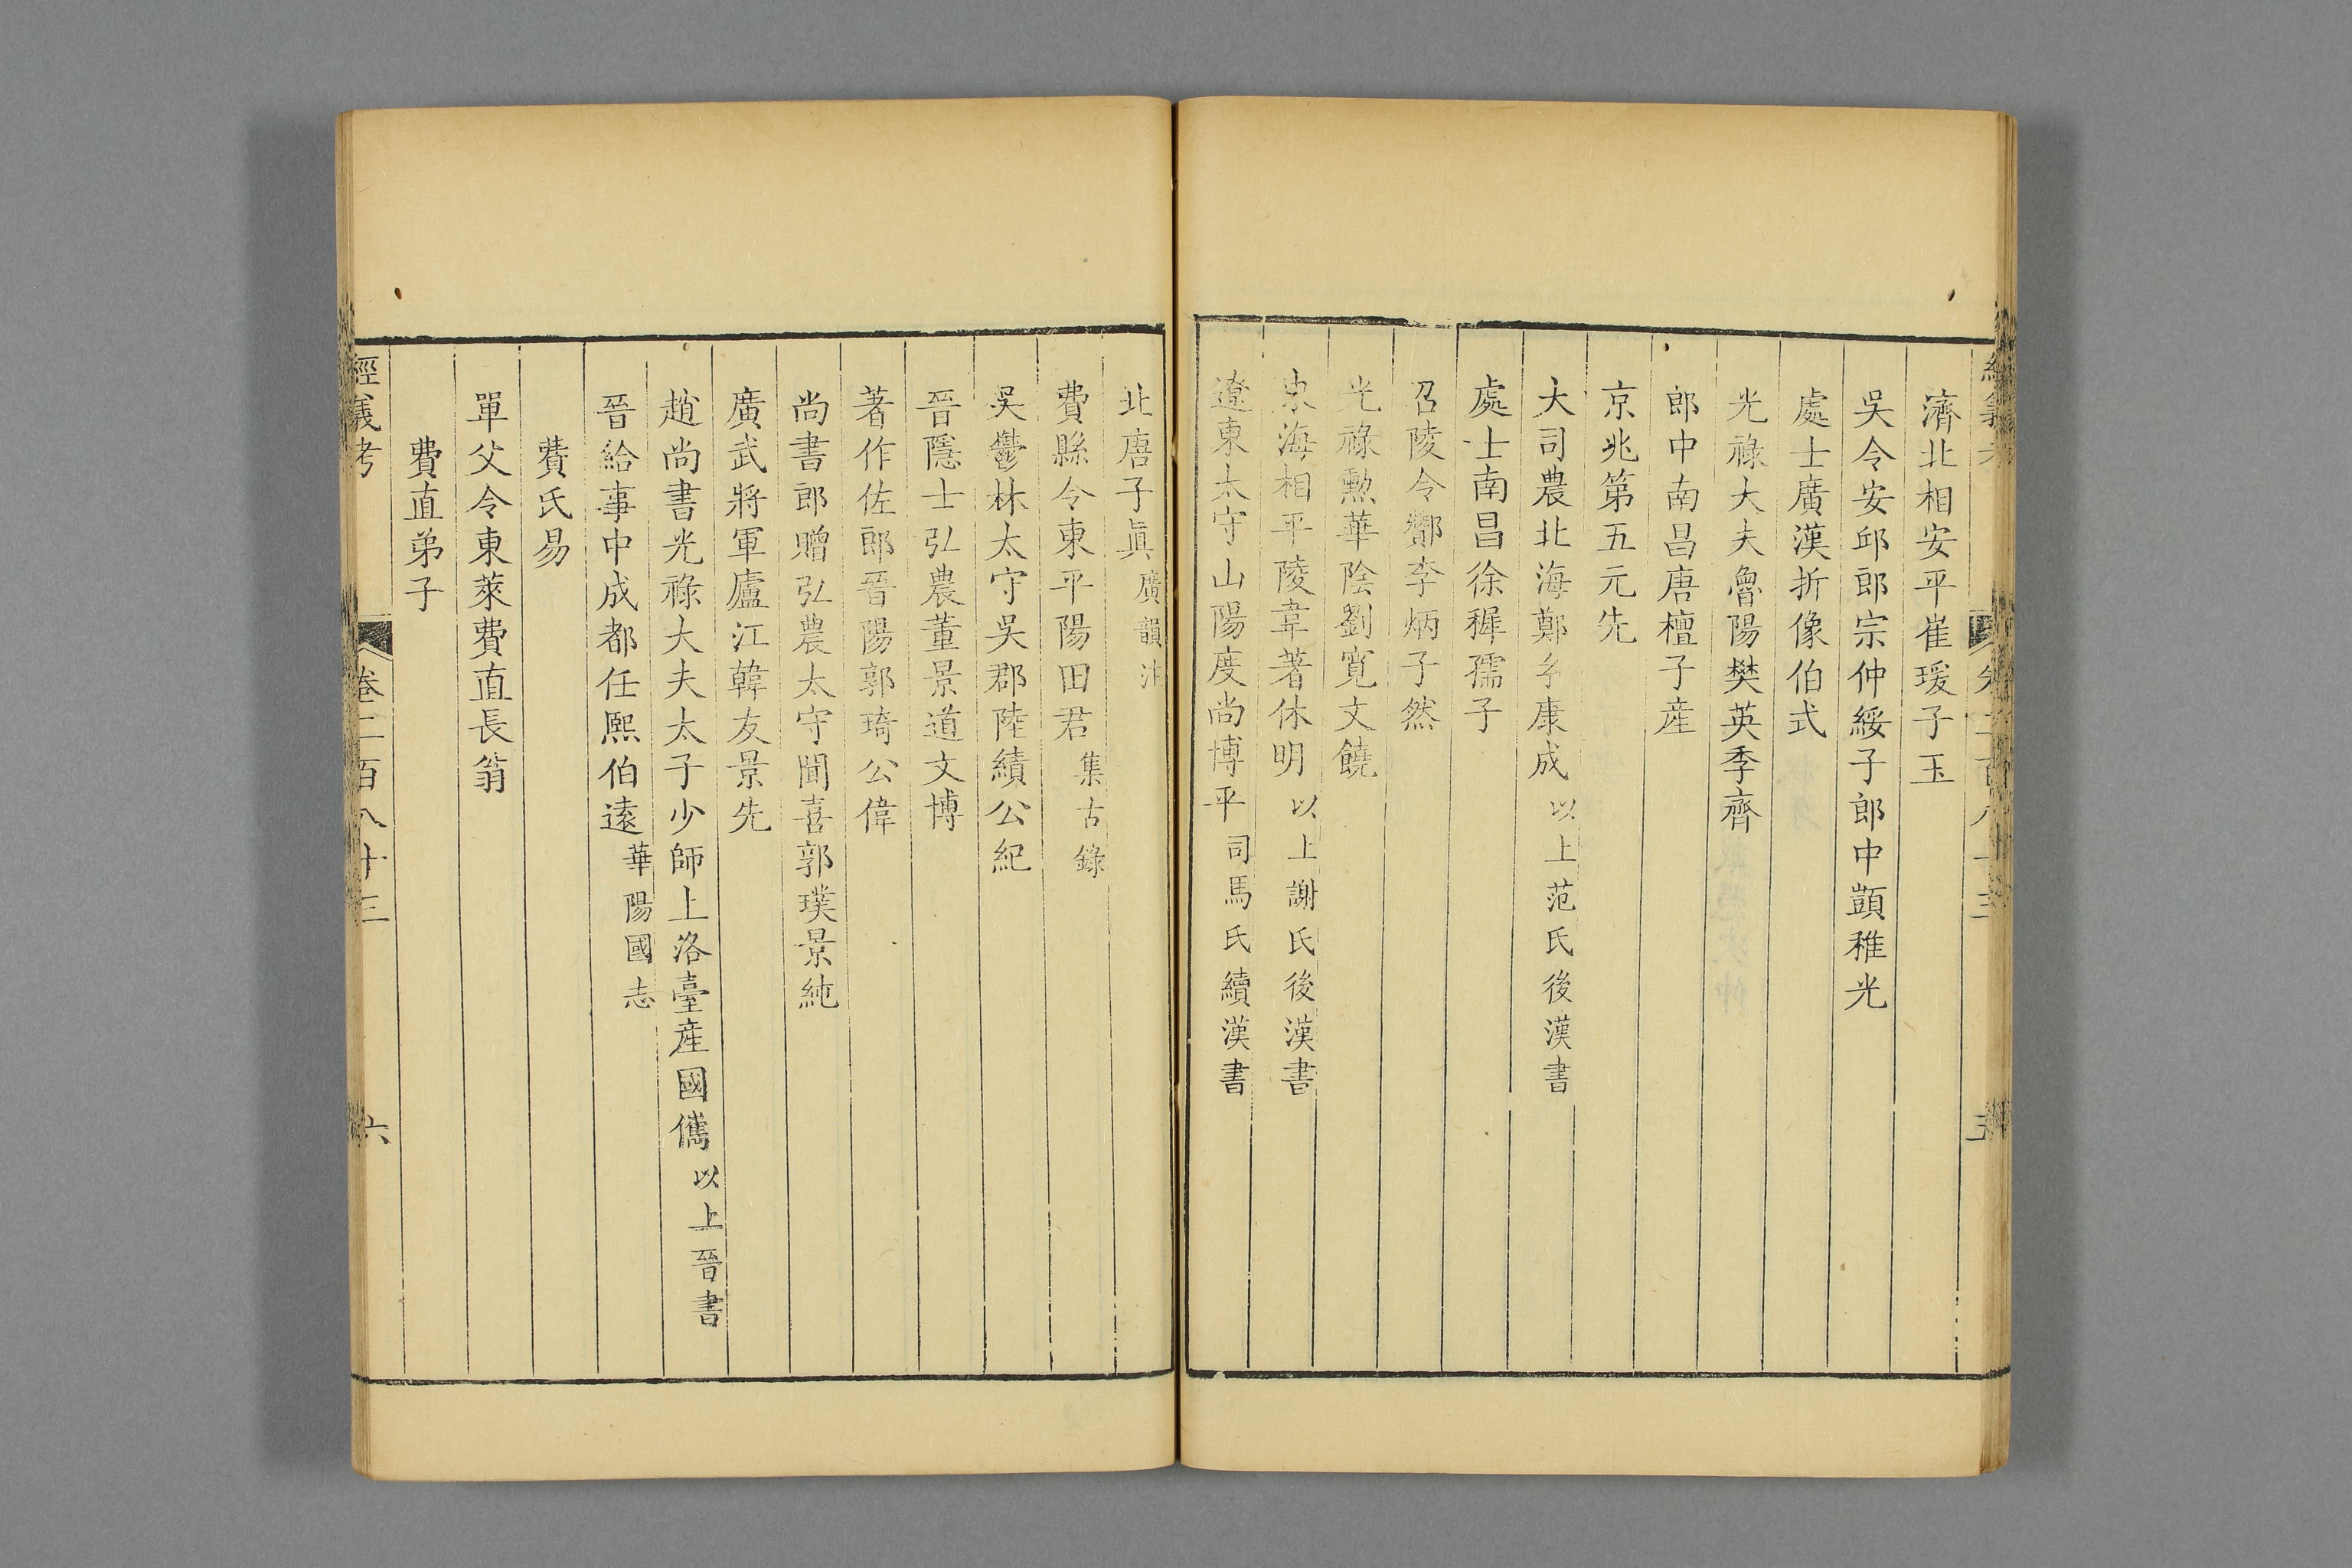 濟北相安平崔瑗子玉
吳令安邱郎宗仲綏子郎中顗稚光
處士廣漢折像伯式
光祿大夫魯陽樊英季齊
郎中南昌唐檀子產
京兆第五元先
大司農北海鄭康成 以上范氏後漢書
處士南昌徐穉孺子
召陵令酇李炳子然
光祿勲華陰劉寬文饒
東海相平陵韋著休明 以上謝氏後漢書
遼東太守山陽度尚博平 司馬氏續漢書
北唐子眞 廣韻注
費縣令東平陽田君 集古錄
吳鬱林太守吳郡陸績公紀
晉隱士弘農董景道文博
著作佐郎晉陽郭琦公偉
尚書郎贈弘農太守聞喜郭璞景純
廣武將軍廬江韓友景先
趙尚書光祿大夫太子少師上洛臺產國儁 以上晉書
晉給事中成都任熙伯遠 華陽國志
費氏易
單父令東萊費直長翁
費直弟子
經義考 卷二百八十三 六